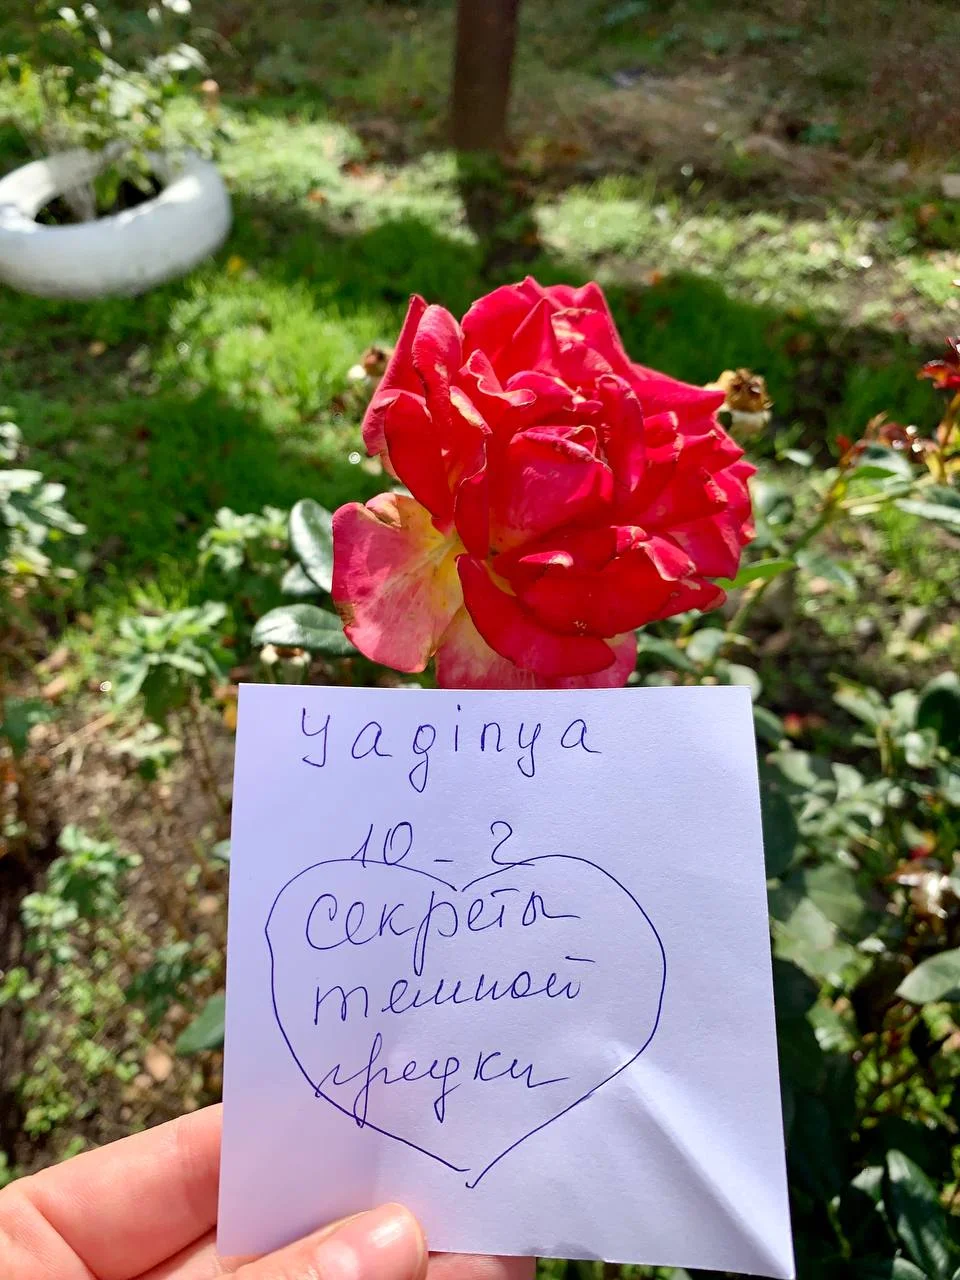 Yaginya
10 - 2
Секреты
темной
грядки